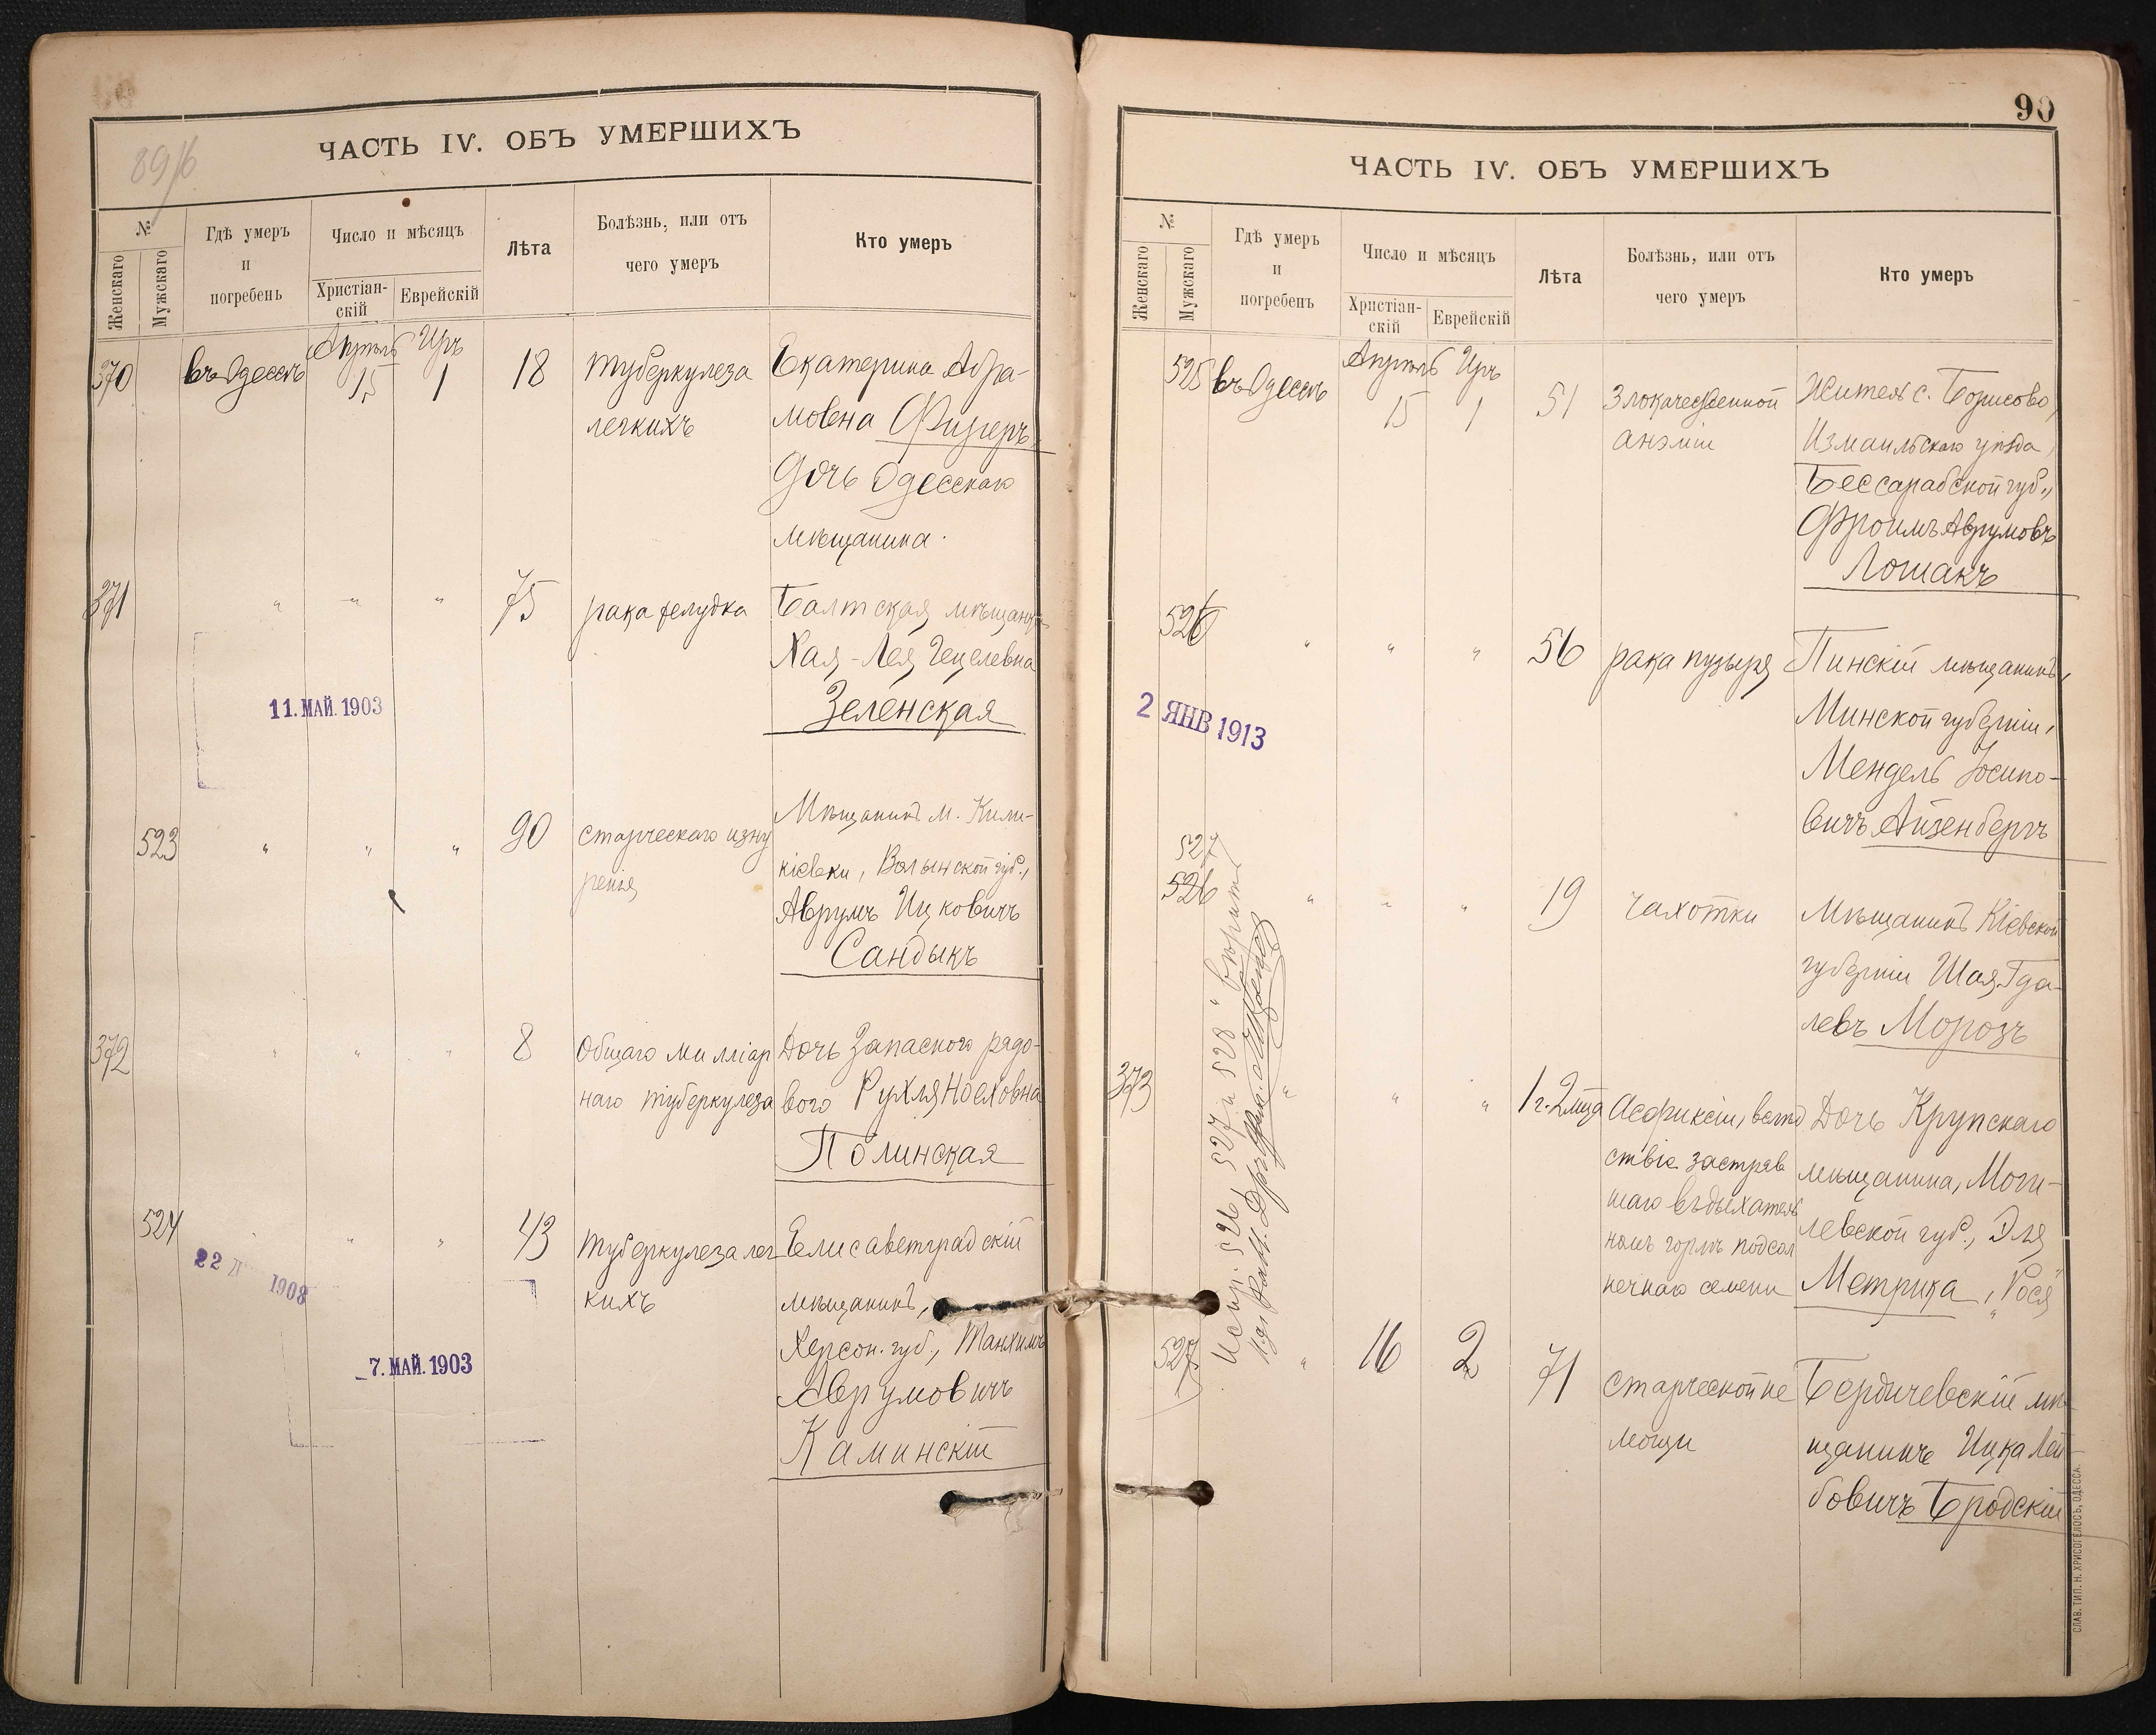 89/б
ЧАСТЬ IV. ОБЪ УМЕРШИХЪ
№
Женскаго
Мужскаго
Гдѣ умеръ
и
погребенъ
Число и мѣсяцъ
Христіан-
скій
Еврейскій
Лѣта
Болѣзнь, или отъ
чего умеръ
Кто умеръ
Апрѣль Иръ
370 въ Одессѣ 15 1 18 туберкулеза Екатерина Абра-
легкихъ мовна Фигеръ
дочь Одесскаго
мѣщанина.
371 " " " 75 рака желудка Балтская мѣщанка
Хая-Лея Гецелевна
Зеленская
11. МАЙ. 1903
Мѣщанинъ м. Кили-
523 " " " 90 старческаго изну кіевки, Волынской губ.,
ренія Аврумъ Ицковичъ
Сандыкъ
372 " " " 8 Общаго милліар Дочь Запаснаго рядо-
наго туберкулеза вого Рухля Ноеховна
Полинская
524 " " " 43 туберкулеза лег Елисаветградскій
кихъ мѣщанинъ,
22 1908
Херсон. губ., Танхимъ
7. МАЙ. 1903
Аврумовичъ
Каминскій
90
ЧАСТЬ IV. ОБЪ УМЕРШИХЪ
№
Женскаго
Мужскаго
Гдѣ умеръ
и
погребенъ
Число и мѣсяцъ
Христіан-
скій
Еврейскій
Лѣта
Болѣзнь, или отъ
чего умеръ
Кто умеръ
Апрѣль Иръ
525 въ Одессѣ 15 1 51 Злокачественной Житель с. Борисово,
анэміи Измаильскаго уѣзда,
Бессарабской губ.,
Фроимъ Аврумовъ
Лошакъ
526 " " " 56 рака пузыря Пинскій мѣщанинъ,
2 ЯНВ 1913
Минской губерніи,
Мендель Іосипо-
вичъ Айзенбергъ
527
526 " " " 19 чахотки Мѣщанинъ Кіевской
губерніи Шая Гда-
левъ Морозъ
373 " " " 1 г. 2 мца Асфиксіи, вслѣд Дочь Крупскаго
ствіе застряв мѣщанина, Моги-
шаго въ дыхатель левской губ., Эля
номъ горлѣ подсол Метрика, "Рося"
нечнаго семени
527 " 16 2 71 старческой не Бердичевскій мѣ-
мощи щанинъ Ицка Лей-
бовичъ Бродскій
Испр. 526, 527 и 528 " вѣрить
СЛАВ. ТИП. Н. ХРИСОГЕЛОСЪ, ОДЕССА.